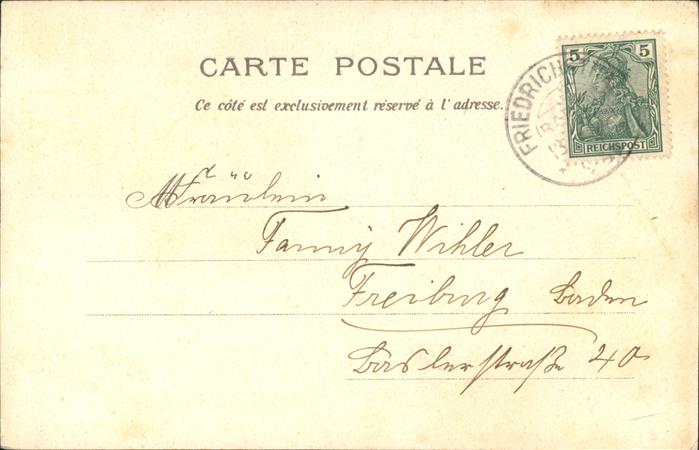 CARTE POSTALE
Ce côté est exclusivement réservé à l'adresse.
5 5
REICHSPOST
FRIEDRICH
Fräulein
Fanny Wihler
Freiburg Baden
Baslerstraße 40